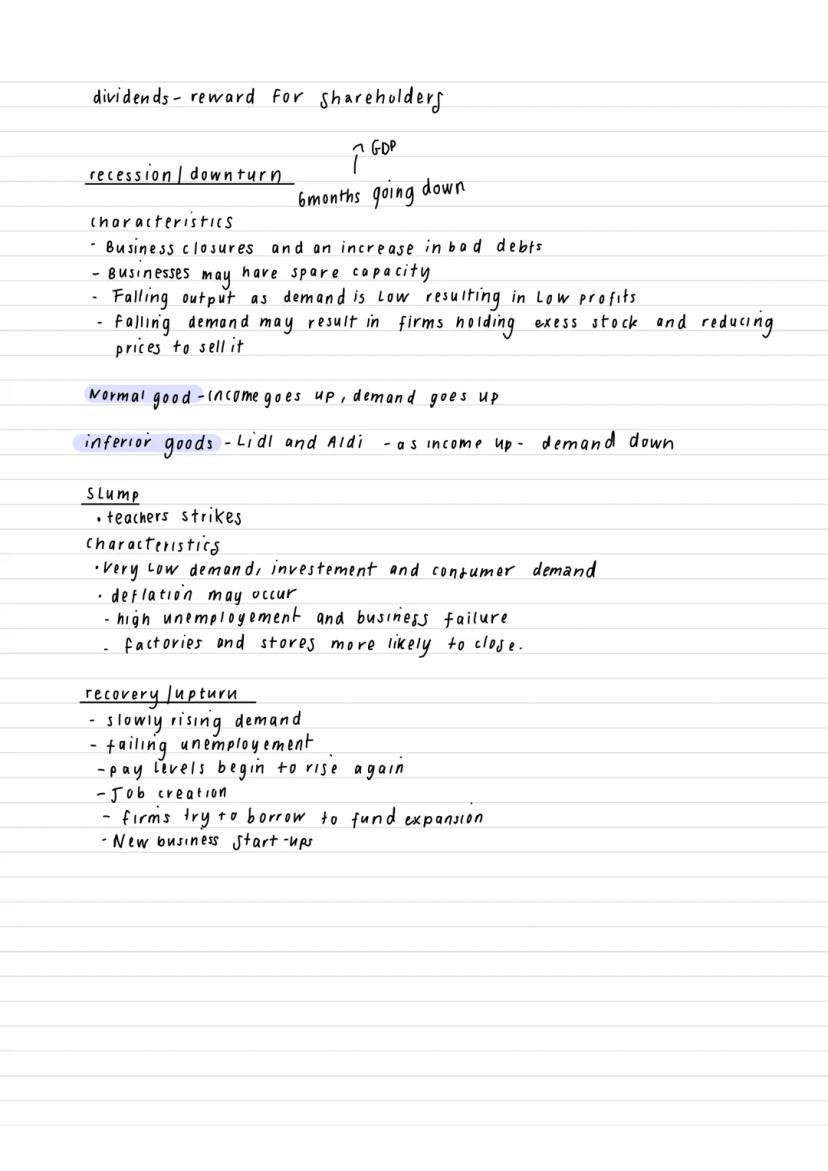 dividends - reward for shareholders
↑ GDP
recession / downturn
6months going down
characteristics
- Business closures and an increase in bad debts
- Businesses may have spare capacity
- Falling output as demand is low resulting in low profits
- falling demand may result in firms holding exess stock and reducing
prices to sell it
Normal good - income goes up, demand goes up
inferior goods - Lidl and Aldi - as income up - demand down
Slump
• teachers strikes
characteristics
• Very low demand, investement and consumer demand
• deflation may occur
- high unemployement and business failure
- factories and stores more likely to close.
recovery / upturn
- slowly rising demand
- failing unemployement
- pay levels begin to rise again
- Job creation
- firms try to borrow to fund expansion
- New business start-ups